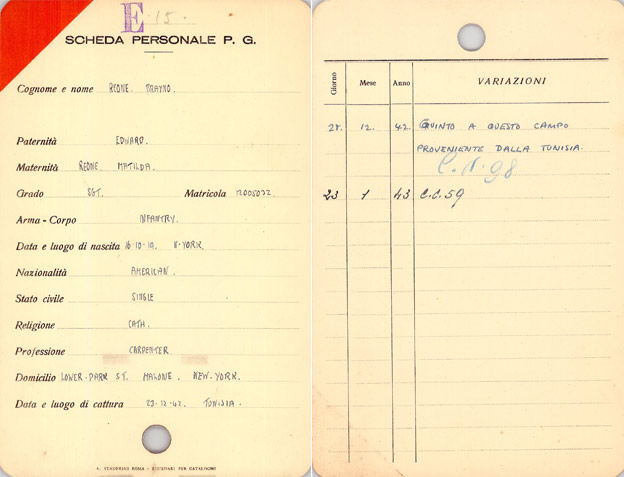 E-15.
SCHEDA PERSONALE P. G.
Cognome e nome REONE. TRAYNO.
Paternità EDWARD.
Maternità REONE. MATILDA.
Grado SGT. Matricola 12008022
Arma - Corpo INFANTRY.
Data e luogo di nascita 16-10-19. N-YORK.
Nazionalità AMERICAN.
Stato civile SINGLE
Religione CATH.
Professione CARPENTER.
Domicilio LOWER-PARK ST. MALONE. NEW-YORK.
Data e luogo di cattura 23-12-42. TUNISIA.
ROMA
Giorno Mese Anno VARIAZIONI
28. 12. 42. GIUNTO A QUESTO CAMPO
PROVENIENTE DALLA TUNISIA.
C.N.98
23 1 43 C.C.59